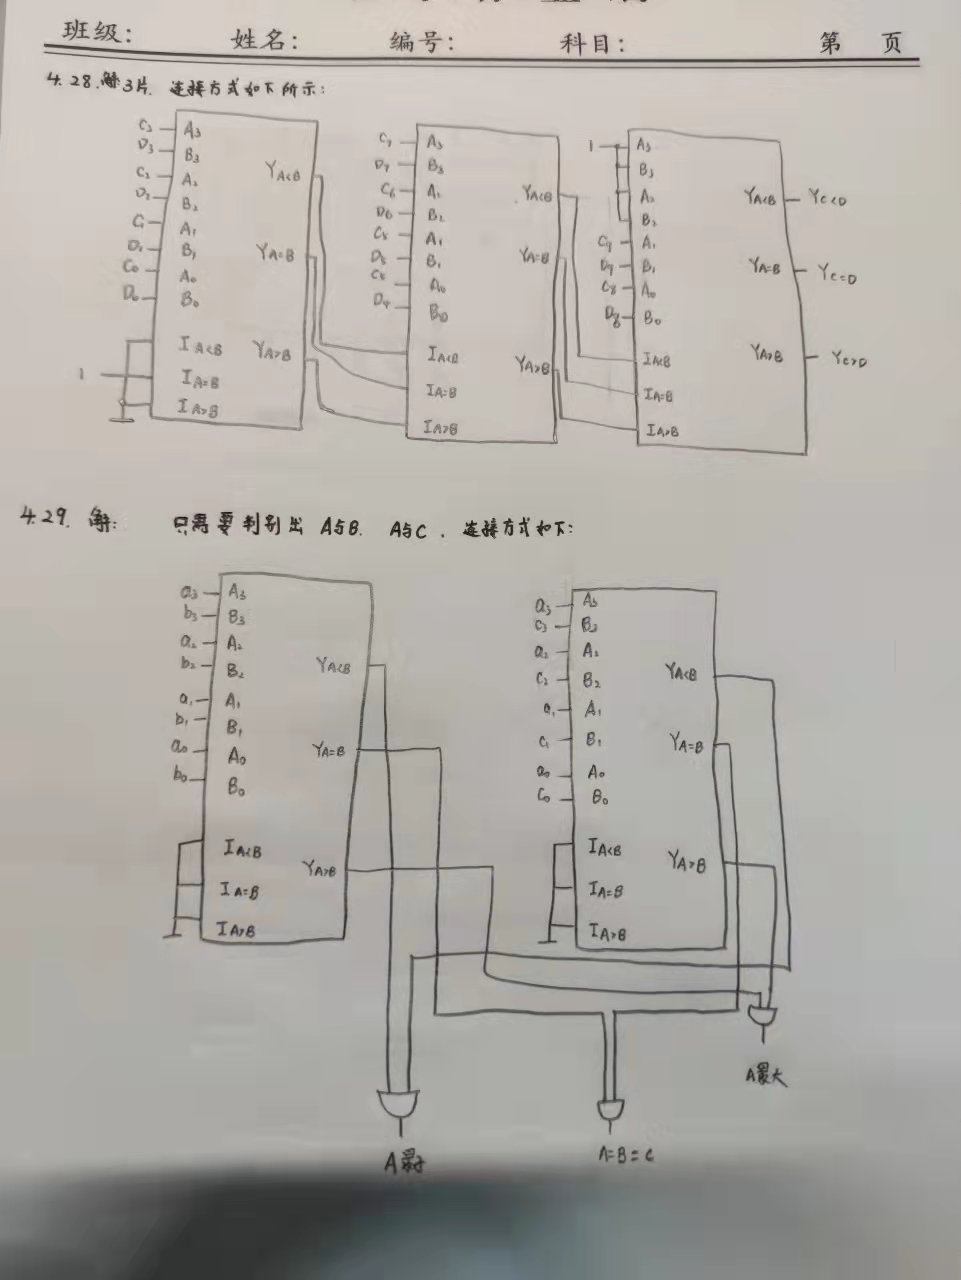 班级: 姓名: 编号: 科目: 第 页
4.28. 解 3片. 连接方式如下所示:
C3 A3
D3 B3
C2 A2
D2 B2
C1 A1
D1 B1
C0 A0
D0 B0
YA<B
YA=B
YA>B
IA<B
1 IA=B
IA>B
C7 A3
D7 B3
C6 A2
D6 B2
C5 A1
D5 B1
A0
D4 B0
YA<B
YA=B
YA>B
IA<B
IA=B
IA>B
1 A3
B3
A2
B2
C9 A1
D9 B1
C8 A0
D8 B0
YA<B YC<D
YA=B YC=D
YA>B YC>D
IA<B
IA=B
IA>B
4.29. 解: 只需要判别出 A与B. A与C. 连接方式如下:
a3 A3
b3 B3
a2 A2
b2 B2
a1 A1
b1 B1
a0 A0
b0 B0
YA<B
YA=B
YA>B
IA<B
IA=B
IA>B
a3 A3
c3 B3
a2 A2
c2 B2
a1 A1
c1 B1
a0 A0
c0 B0
YA<B
YA=B
YA>B
IA<B
IA=B
IA>B
A最大
A最小
A=B=C